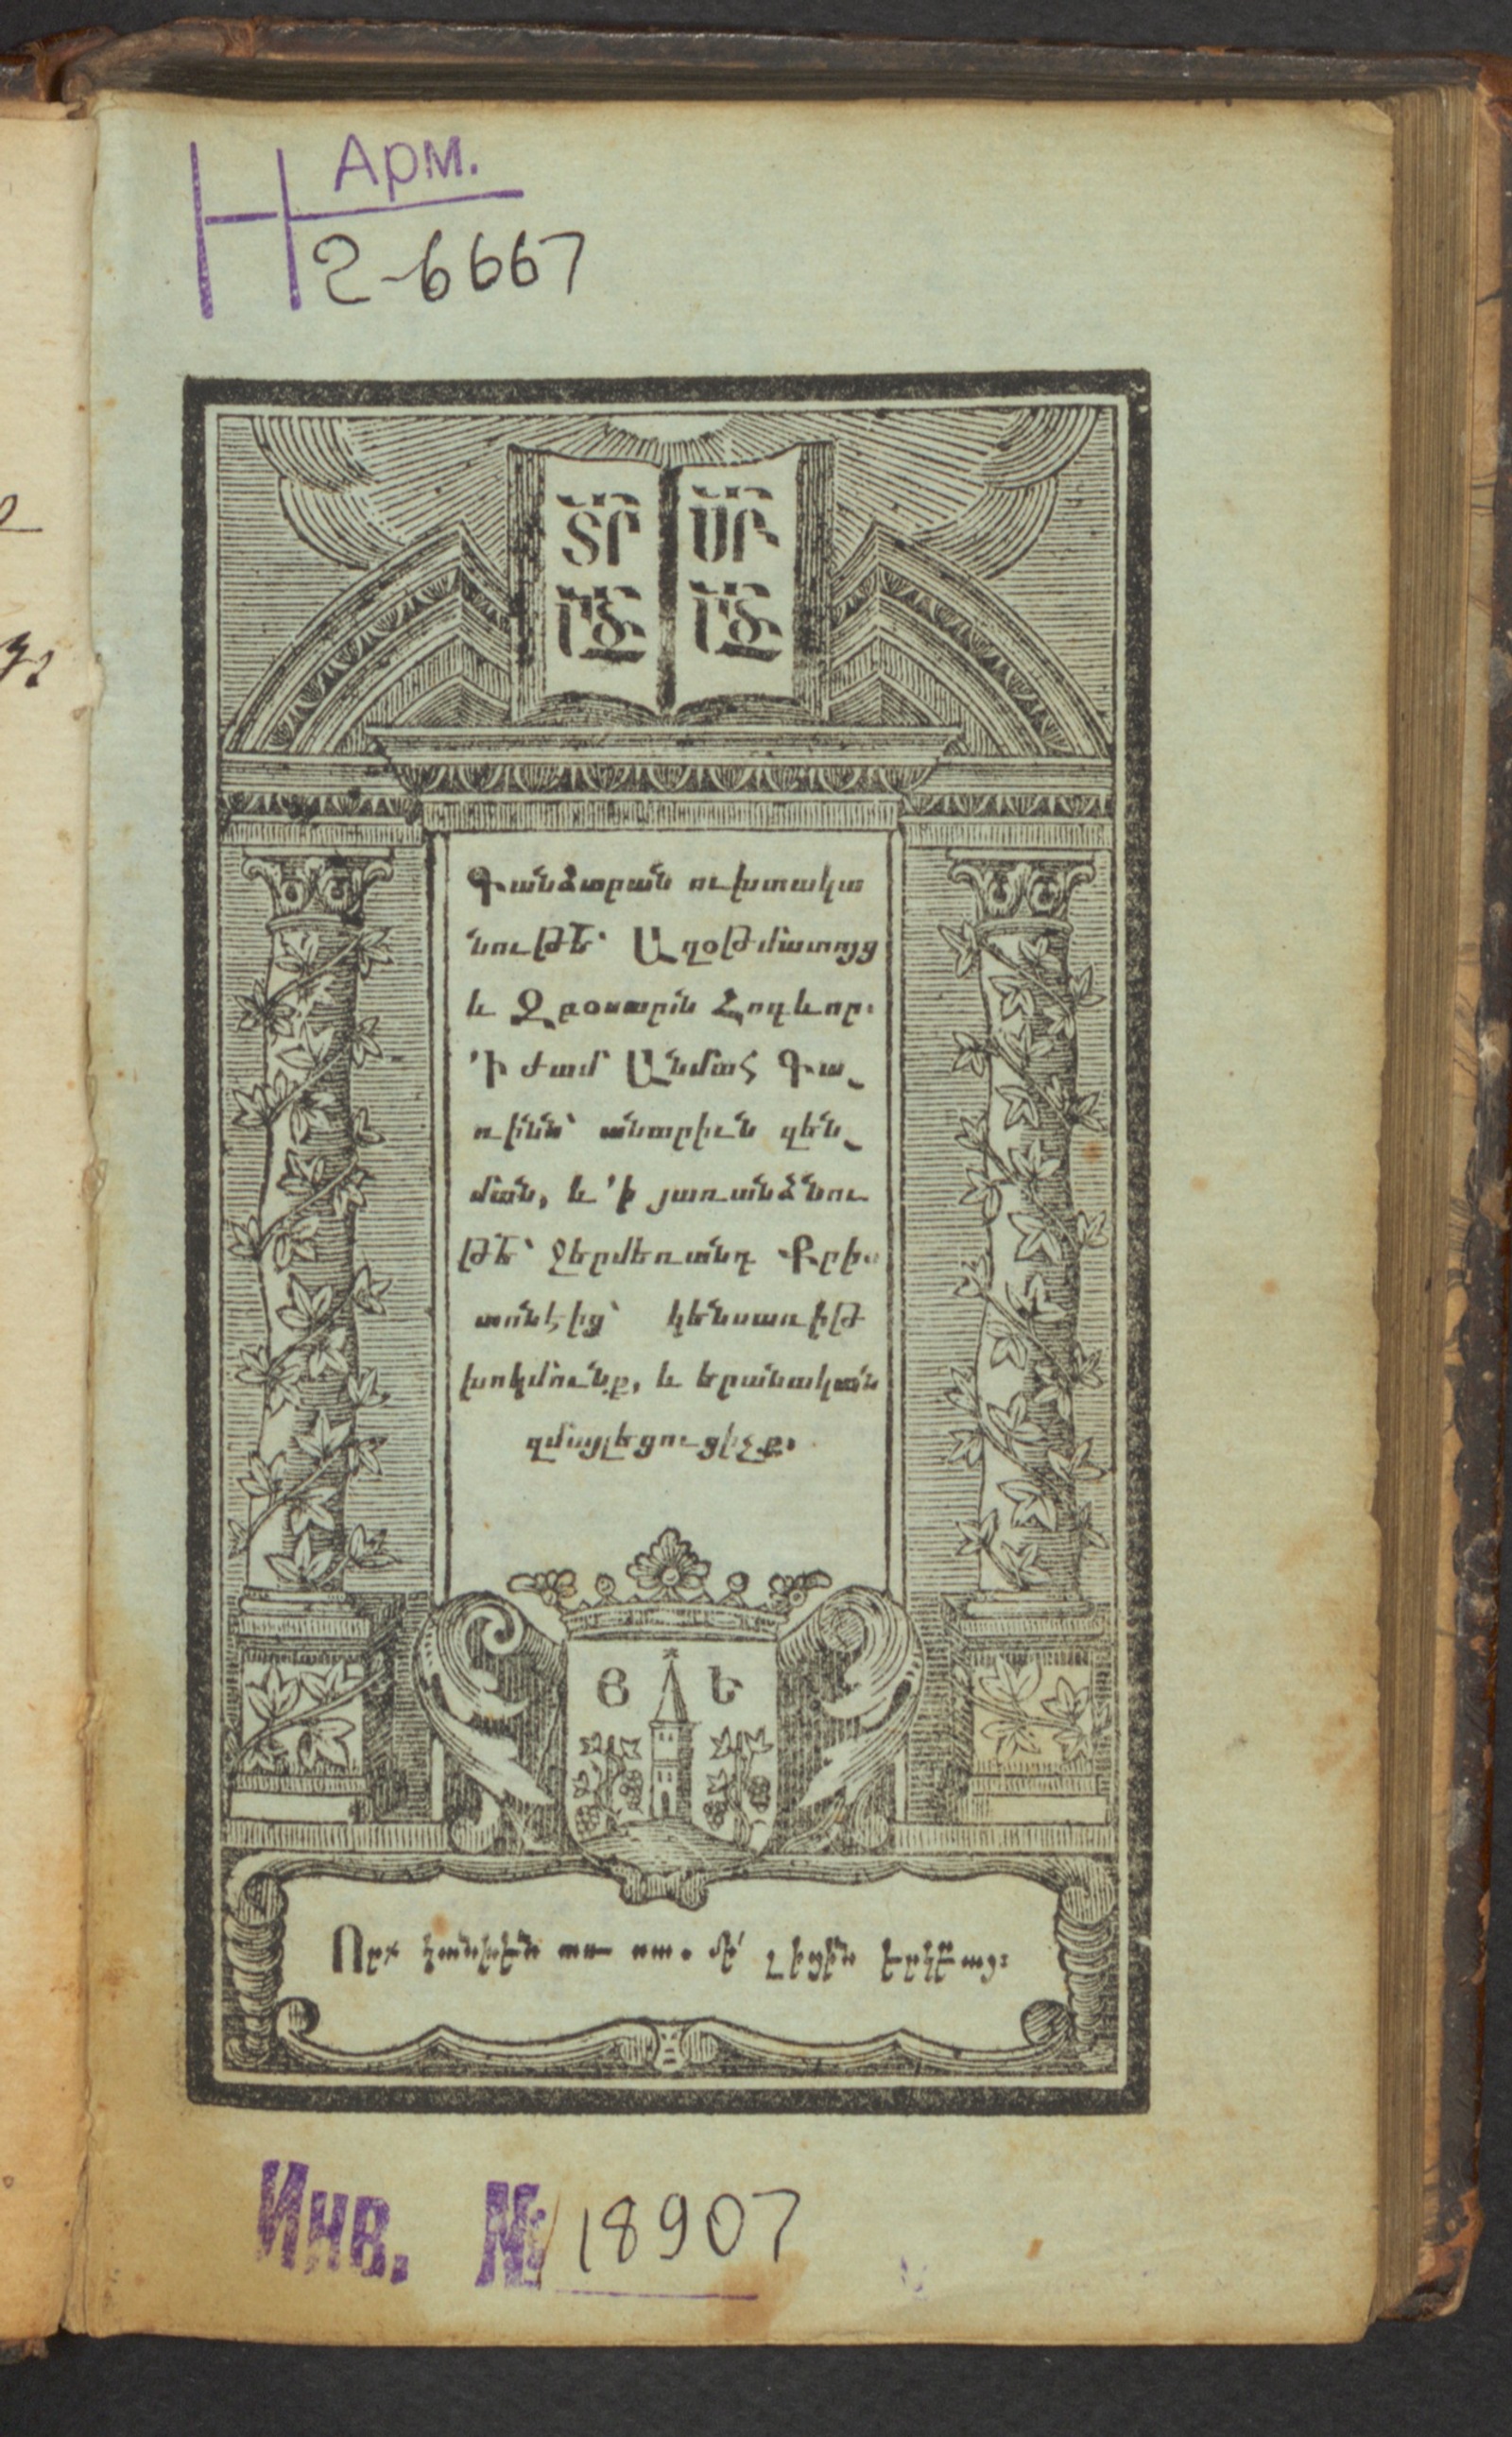 Арм.
Н 2-6667
ՏՐ ՍՐ
Գանձարան ուխտակա
նուԹե՝ Աղօթմատոյց
և Զբօսարան Հոգևոր.
՛Ի ժամ Անմահ Գա֊
ռինն՝ անարիւն զեն֊
ման, և ՛ի յառանձնու
թե՝ ջերմեռանդ Քրիս
տոնէից՝ կենսառիթ
խոկմունք, և երանական
զմայլեցուցիչք.
Յ Ե
Инв. № 18907